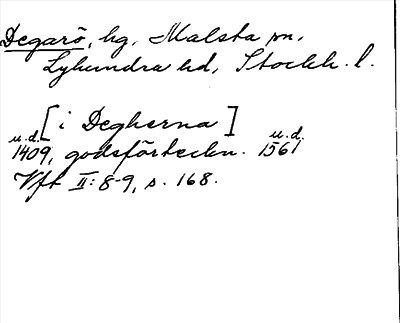 Degarö, hg, Malsta sn,
Lyhundra hd, Stockh. l.
[i Degherna]
u.d. 1409, godsförteckn. u.d. 1561
Vft II: 8-9, s. 168.